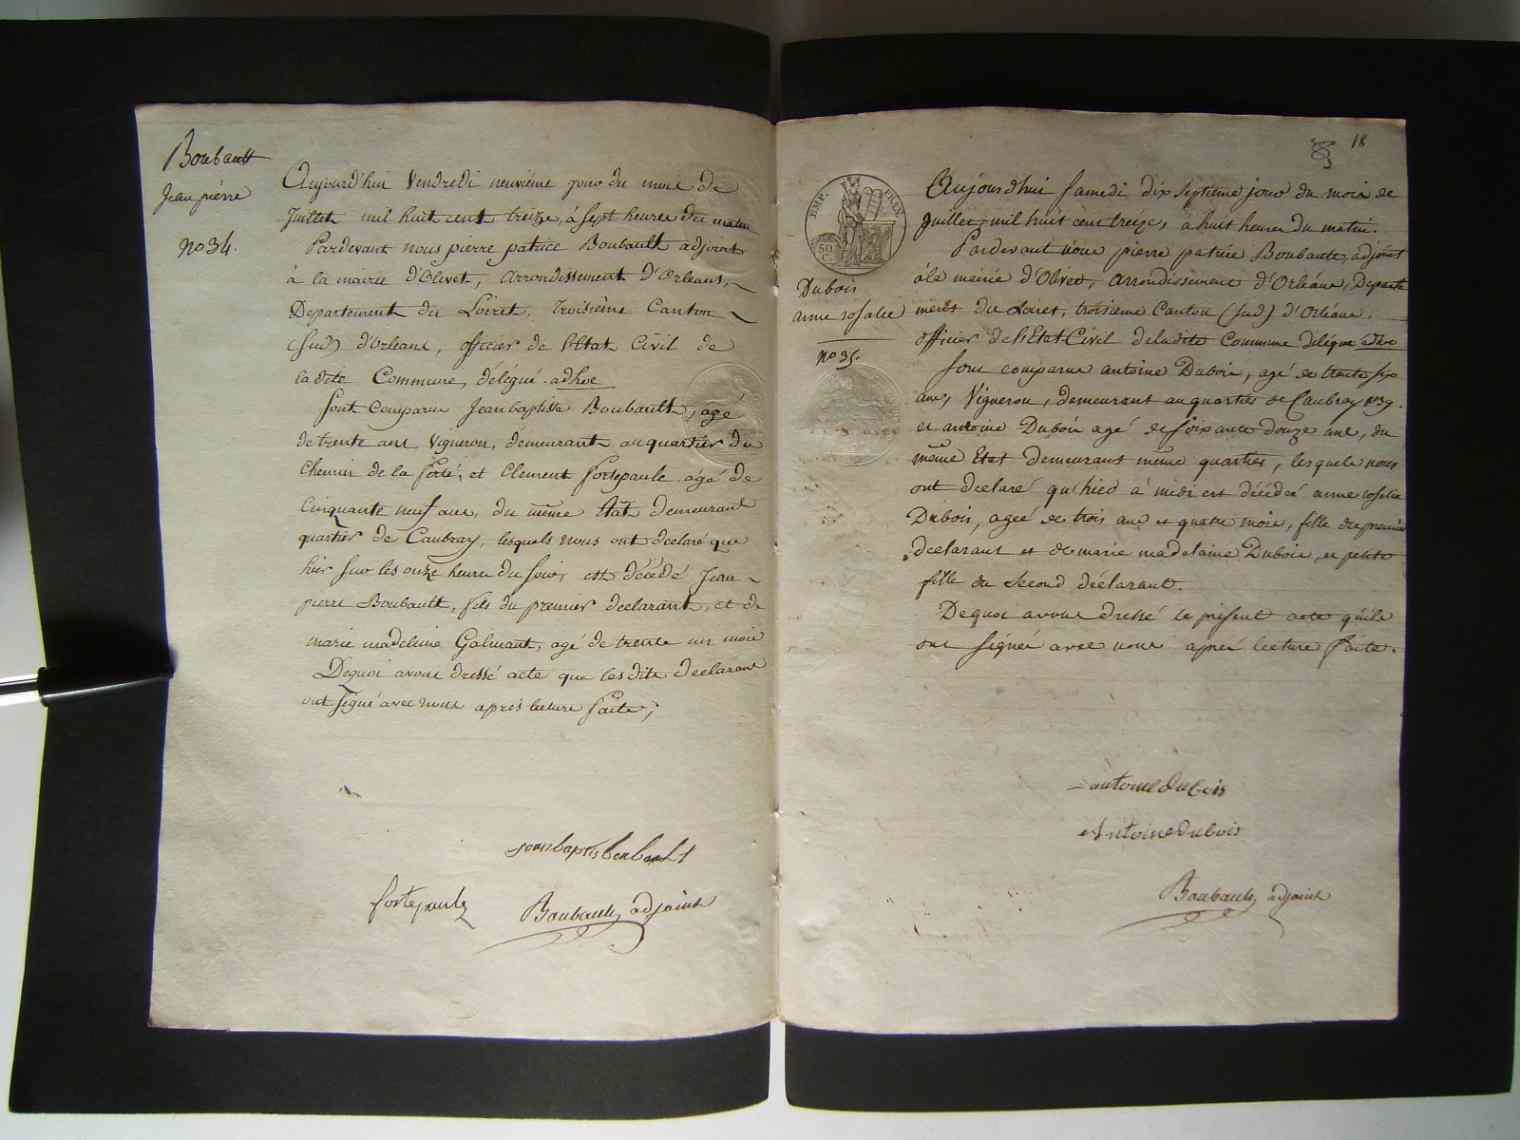 Boubault
Jean pierre
no 34.
Aujourd'hui Vendredi neuvième jour du mois de
Juillet mil huit cent treize, à Sept heures du matin
Pardevant nous pierre patrice Boubault adjoint
à la mairie d'Olivet, arrondissement d'Orléans,
Departement du Loiret, troisième Canton
(Sud) d'Orleans, officier de l'Etat Civil de
la dite Commune, délégué adhoc
Sont comparus Jean baptiste Boubault, agé
de trente ans Vigneron, demeurant au quartier du
Chemin de la ferté, et Clement fortepaule agé de
Cinquante neuf ans, du même Etat demeurant
quartier de Caubray, lesquels nous ont declaré que
hier sur les onze heures du soir, est décédé Jean
pierre Boubault, fils du premier declarant, et de
marie madeleine Galmant, agé de trente un mois
Dequoi avons dressé acte que les dits declarant
ont signé avec nous après lecture faite;
jean baptis boubault
fortepaule
Boubault adjoint
18
EMP. FRAN.
50 C.
Dubois
anne rosalie
no 35.
Aujourd'hui Samedi dix Septieme jour du mois de
Juillet, mil huit cent treize, à huit heures du matin.
Pardevant nous pierre patrice Boubault, adjoint
à la mairie d'Olivet, arrondissement d'Orléans, Departe
ment du Loiret, troisieme Canton (Sud) d'Orléans,
officier de l'Etat Civil deladite Commune délégué adhoc
Sont comparus antoine Dubois, agé de trente six
ans, Vigneron, demeurant au quartier de Caubray no 39.
et antoine Dubois agé de soixante douze ans, du
même Etat demeurant même quartier, lesquels nous
ont declaré qu'hier à midi est décédée anne rosalie
Dubois, ageé de trois ans et quatre mois, fille du premier
declarant et de marie madelaine Dubois, et petite
fille du second déclarant.
Dequoi avons dressé le présent acte qu'ils
ont signé avec nous après lecture faite.
antoine dubois
Antoine dubois
Boubault, adjoint